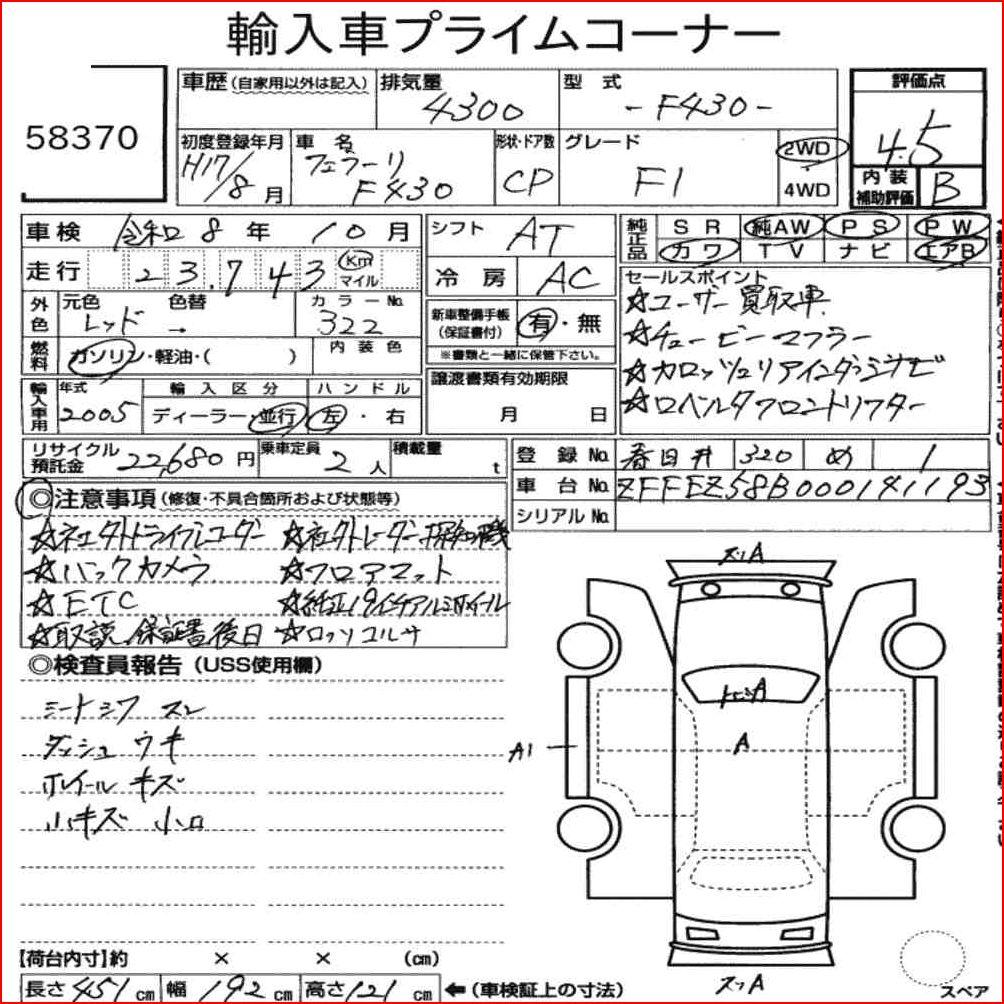 輸入車プライムコーナー
58370
車歴(自家用以外は記入) 排気量 4300 型式 -F430- 評価点 4.5
初度登録年月 H17/8月 車名 フェラーリ F430 形状・ドア数 CP グレード F1 2WD 4WD 内装補助評価 B
車検 令和8年10月 シフト AT 純正品 SR 純AW PS PW
走行 23,743 Km マイル 冷房 AC カワ TV ナビ エアB
外色 元色 レッド 色替 → カラーNo. 322
新車整備手帳(保証書付) 有・無
※書類と一緒に保管下さい。
燃料 ガソリン・軽油・( ) 内装色
セールスポイント
☆ユーザー買取車
☆チュービーマフラー
☆カロッツェリアインダッシュナビ
☆ロベルタフロントリフター
輸入車用 年式 2005 輸入区分 ディーラー・並行 ハンドル 左・右
譲渡書類有効期限 月 日
リサイクル預託金 22,680円 乗車定員 2人 積載量 t
登録No. 春日井 320 め 1
車台No. ZFFEZ58B000141193
シリアルNo.
◎注意事項(修復・不具合箇所および状態等)
☆社外ドライブレコーダー ☆社外レーダー探知機
☆バックカメラ ☆フロアマット
☆ETC ☆純正19インチアルミホイール
☆取説、保証書後日 ☆ロッソコルサ
◎検査員報告(USS使用欄)
シートシワ スレ
ダッシュ ウキ
ホイール キズ
小キズ 小凹
スリA
トビA
A
A1
スリA
スペア
【荷台内寸】約 × × (cm)
長さ 451cm 幅 192cm 高さ 121cm ←(車検証上の寸法)